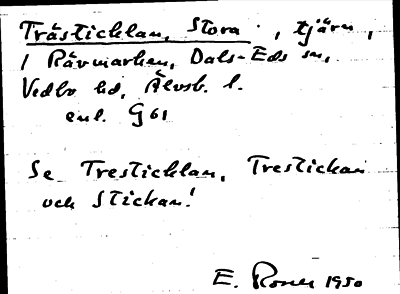 Trästicklan, Stora, tjärn,
i Rävmarken, Dals-Eds sn,
Vedbo hd, Älvsb. l.
enl. G61
Se Tresticklan, Trestickan
och Stickan!
E. Rosell 1950